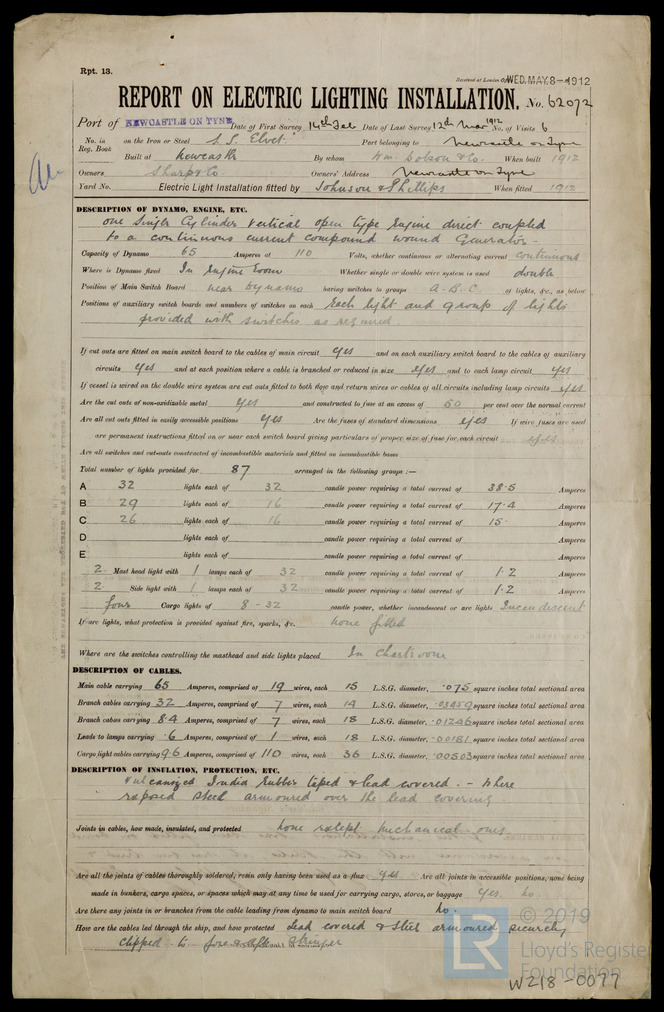 Rpt. 13.
Received at London Office WED. MAY. 8 - 1912
REPORT ON ELECTRIC LIGHTING INSTALLATION. No. 62072
Port of NEWCASTLE ON TYNE Date of First Survey 14th Feb Date of Last Survey 12th Mar 1912 No. of Visits 6
No. in Reg. Book on the Iron or Steel S.S. Elvet Port belonging to Newcastle on Tyne
Built at Newcastle By whom Wm. Dobson & Co. When built 1912
Owners Sharp & Co Owners' Address Newcastle on Tyne
Yard No. Electric Light Installation fitted by Johnson & Phillips When fitted 1912
DESCRIPTION OF DYNAMO, ENGINE, ETC.
One Single Cylinder Vertical open type Engine direct coupled
to a continuous current compound wound Generator -
Capacity of Dynamo 65 Amperes at 110 Volts, whether continuous or alternating current continuous
Where is Dynamo fixed In Engine Room Whether single or double wire system is used double
Position of Main Switch Board near Dynamo having switches to groups A - B - C of lights, &c., as below
Positions of auxiliary switch boards and numbers of switches on each Each light and group of lights
provided with switches as required.
If cut outs are fitted on main switch board to the cables of main circuit yes and on each auxiliary switch board to the cables of auxiliary
circuits yes and at each position where a cable is branched or reduced in size yes and to each lamp circuit yes
If vessel is wired on the double wire system are cut outs fitted to both flow and return wires or cables of all circuits including lamp circuits yes
Are the cut outs of non-oxidizable metal yes and constructed to fuse at an excess of 50 per cent over the normal current
Are all cut outs fitted in easily accessible positions yes Are the fuses of standard dimensions yes If wire fuses are used
are permanent instructions fitted on or near each switch board giving particulars of proper size of fuse for each circuit yes
Are all switches and cut-outs constructed of incombustible materials and fitted on incombustible bases
Total number of lights provided for 87 arranged in the following groups :—
A 32 lights each of 32 candle power requiring a total current of 38.5 Amperes
B 29 lights each of 16 candle power requiring a total current of 17.4 Amperes
C 26 lights each of 16 candle power requiring a total current of 15. Amperes
D lights each of candle power requiring a total current of Amperes
E lights each of candle power requiring a total current of Amperes
2 Mast head light with 1 lamps each of 32 candle power requiring a total current of 1.2 Amperes
2 Side light with 1 lamps each of 32 candle power requiring a total current of 1.2 Amperes
four Cargo lights of 8 - 32 candle power, whether incandescent or arc lights Incandescent
If arc lights, what protection is provided against fire, sparks, &c. none fitted
Where are the switches controlling the masthead and side lights placed In Chartroom
DESCRIPTION OF CABLES.
Main cable carrying 65 Amperes, comprised of 19 wires, each 15 L.S.G. diameter, .075 square inches total sectional area
Branch cables carrying 32 Amperes, comprised of 7 wires, each 14 L.S.G. diameter, .03459 square inches total sectional area
Branch cables carrying 8.4 Amperes, comprised of 7 wires, each 18 L.S.G. diameter, .01246 square inches total sectional area
Leads to lamps carrying .6 Amperes, comprised of 1 wires, each 18 L.S.G. diameter, .00181 square inches total sectional area
Cargo light cables carrying 9.6 Amperes, comprised of 110 wires, each 36 L.S.G. diameter, .00503 square inches total sectional area
DESCRIPTION OF INSULATION, PROTECTION, ETC.
Vulcanized India Rubber taped & lead covered. - Where
exposed steel armoured over the lead covering
Joints in cables, how made, insulated, and protected none except Mechanical ones.
Are all the joints of cables thoroughly soldered, resin only having been used as a flux yes Are all joints in accessible positions, none being
made in bunkers, cargo spaces, or spaces which may at any time be used for carrying cargo, stores, or baggage Yes. no
Are there any joints in or branches from the cable leading from dynamo to main switch board no.
How are the cables led through the ship, and how protected Lead covered & steel armoured securely
clipped to fore & aft Stringer
© 2019
LR
Lloyd's Register
Foundation
W218-0077